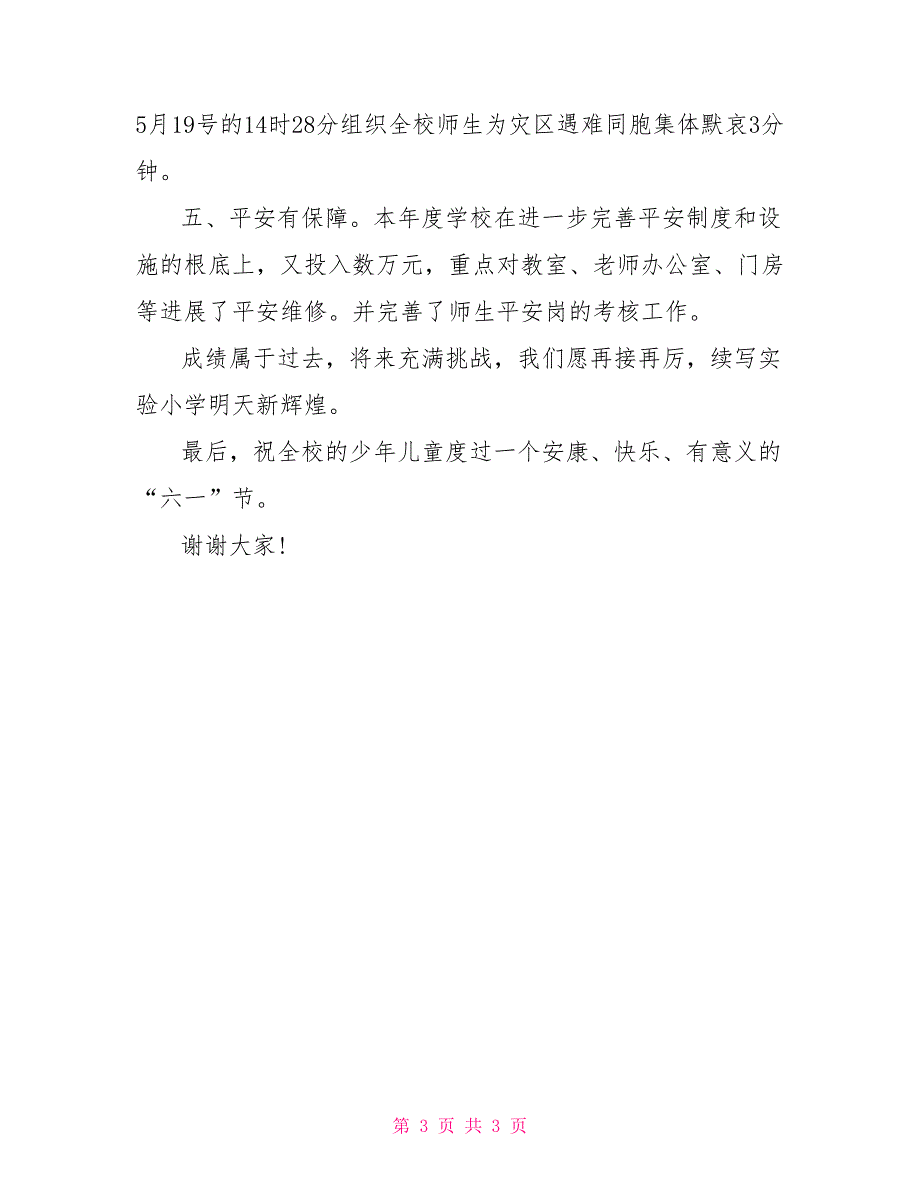 5月19号的14时28分组织全校师生为灾区遇难同胞集体默哀3分
钟。
五、平安有保障。本年度学校在进一步完善平安制度和设
施的根底上，又投入数万元，重点对教室、老师办公室、门房
等进展了平安维修。并完善了师生平安岗的考核工作。
成绩属于过去，将来充满挑战，我们愿再接再厉，续写实
验小学明天新辉煌。
最后，祝全校的少年儿童度过一个安康、快乐、有意义的
“六一”节。
谢谢大家!
第 3 页 共 3 页